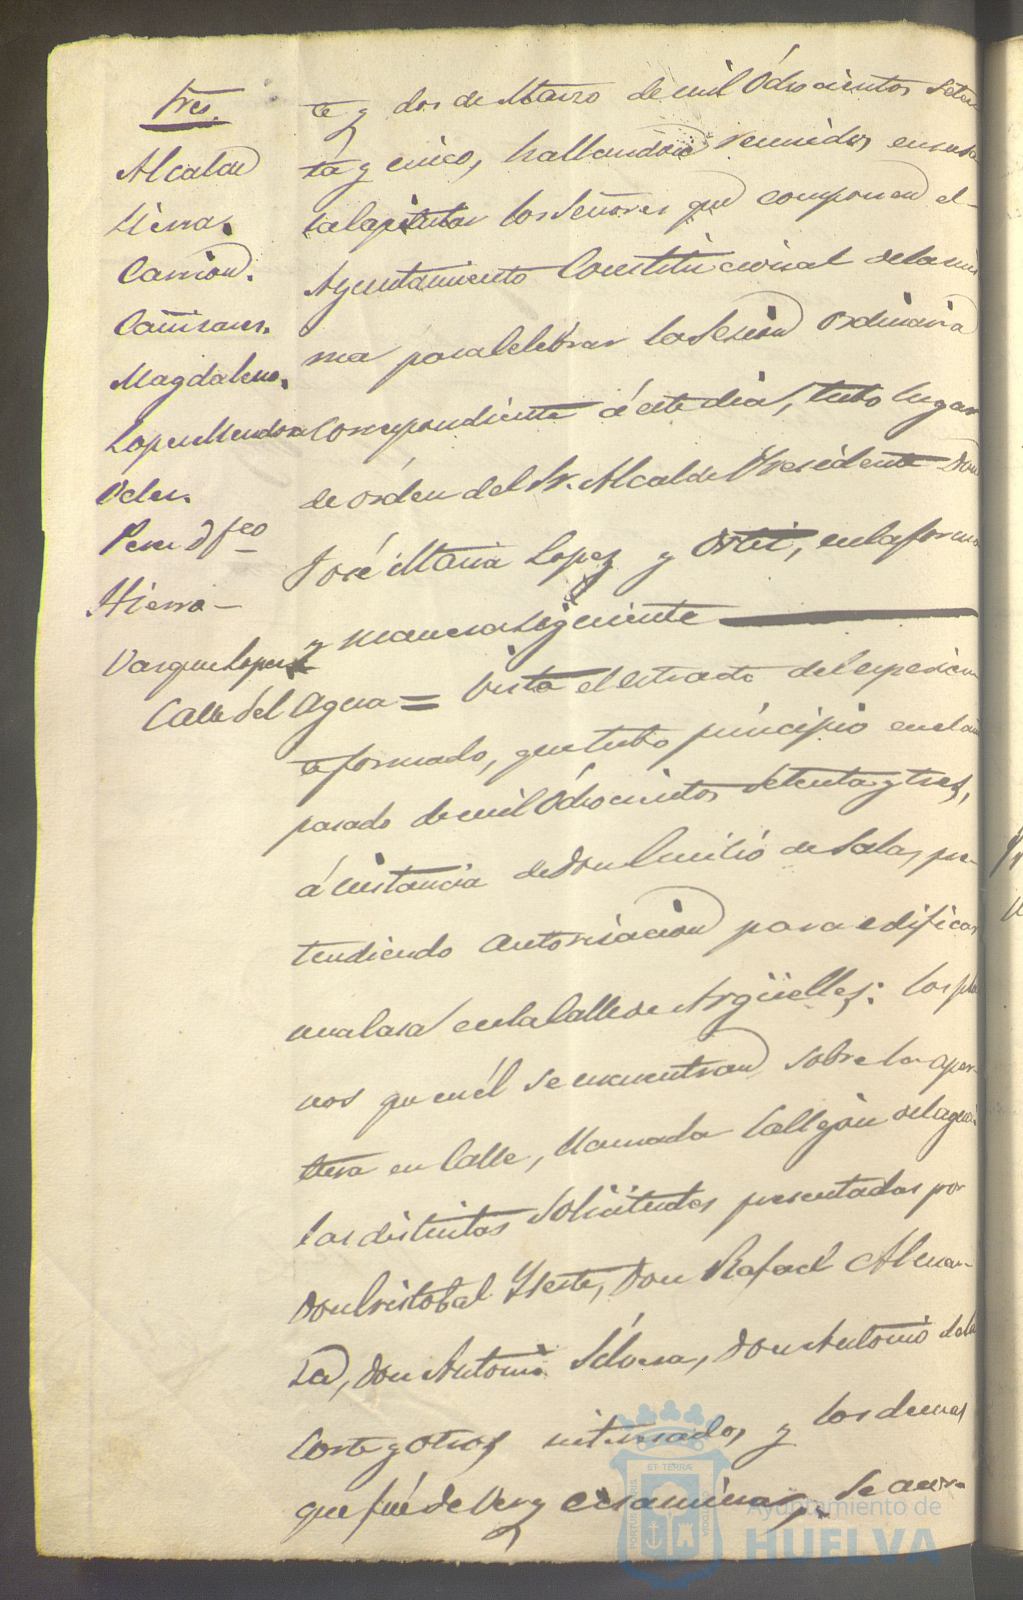 Sres.
Alcalde
Sierra.
Carrion.
Cañizares.
Magdaleno.
Lopez Mendoza
Oclez.
Perez d Fco
Hierro
Vazquez Lopez
te y dos de Marzo de mil Ochocientos seten
ta y cinco, hallandose reunidos en su
sala Capitular los Señores que componen el
Ayuntamiento Constitucional de la mis
ma para celebrar la Sesion Ordinaria
correspondiente á este dia, tubo lugar
de órden del Sr. Alcalde Presidente Don
José Maria Lopez y Ortiz, en la forma
y manera siguiente
Calle del Agua = Vista el estracto del espedien
te formado, que tubo principio en el año
pasado de mil Ochocientos setenta y tres,
á instancia de Don Emilio de Salas, pre-
tendiendo autorisacion para edificar
una Casa en la Calle de Argüelles: los pla
nos que en él se encuentran sobre la aper-
tura en Calle, llamada Callejon del agua:
las distintas solicitudes presentadas por
Don Cristobal Yeste, Don Rafael Alman-
za, Don Antonio Silvera, Don Antonio de la
Corte y otros interesados, y los demas
que fué de ver y ecsaminar, Se acor-
PORTUS MARIS ET TERRAE CUSTODIA
Ayuntamiento de
HUELVA